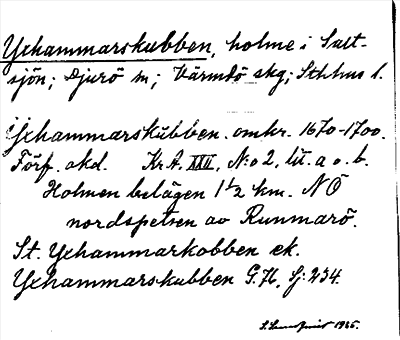 Yxhammarskubben, holme i Salt-
sjön; Djurö sn; Värmdö skg; Sthlms l.
Yxhammarskubben. omkr. 1670-1700.
Förf. okd. Kr.A. XXII, N:o 2, lit. a o. b.
Holmen belägen 1 1/2 km. NÖ
nordspetsen av Runmarö.
St. Yxhammarkobben ek.
Yxhammarskubben G.71, Sj: 234.
S. Lundqvist 1925.